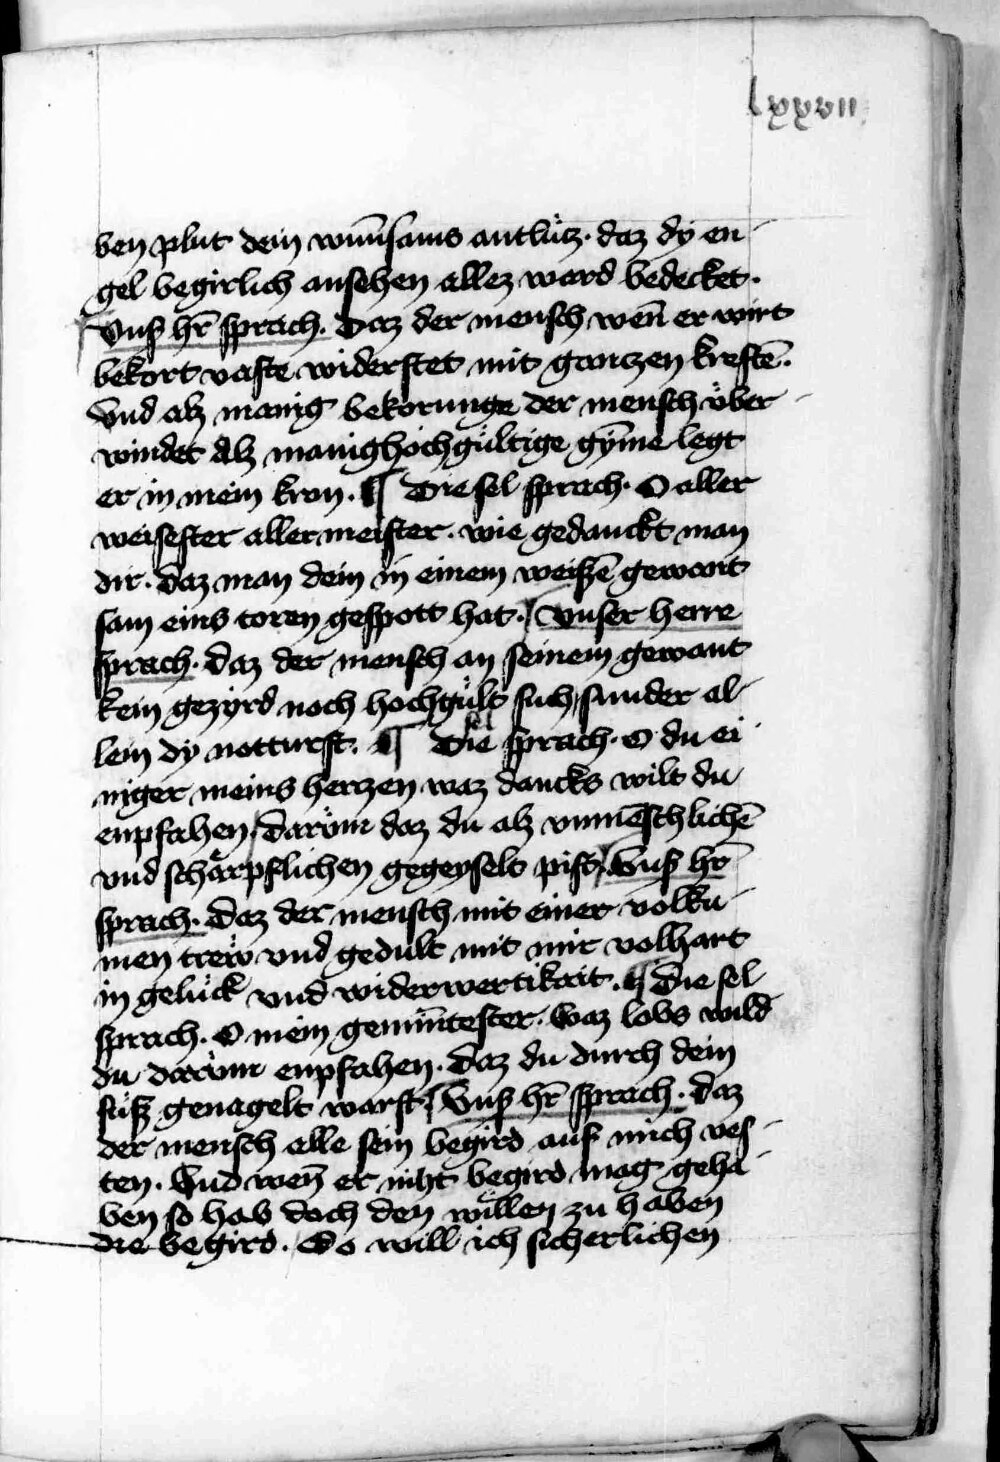 lxxvii
ben plut dein wun̄sams antlu̍tz. daz dy en
gel begirlich ansehen allez ward bedecket.
Vnß hr̄ sprach. Daz der mensch wen̄ er wirt
bekort vaste widerstet mit gantzen kreftē.
Vnd alz manig bekorunge der mensch v̈ber
windet Alz manighochgu̍ltige gȳme legt
er in mein kron. ¶ Die sel sprach. O aller
weisester aller meister. wie gedanckt man
dir. Daz man dein in einem weißē gewant
sam eins toren gespott hat. Vnser herre
sprach. Daz der mensch an seinem gewant
kein gezyrd noch hochgu̍lt such sunder al
lein dy notturft. ¶ Die sel sprach. O du ei
niger meins hertzen waz dancks wilt du
enpfahen Darvm daz du alz vnmēschlichē
vnd scha̎rpflichen gegeyselt pist. Vnß hr̄
sprach. Daz der mensch mit einer volku
men trew vnd gedult mit mir volhart
in gelu̍ck vnd widerwertikait. ¶ Die sel
sprach. O mein gemin̄tester. Waz lobs wild
du darvm enpfahen. Daz du durch dein
fu̍ß genagelt warst. Vnß hr̄ sprach. Daz
der mensch alle sein begird auf mich ves
ten. Vnd wen̄ er niht begird mag geha
ben so hab doch den willen zu haben
die begird. So will ich sicherlichen